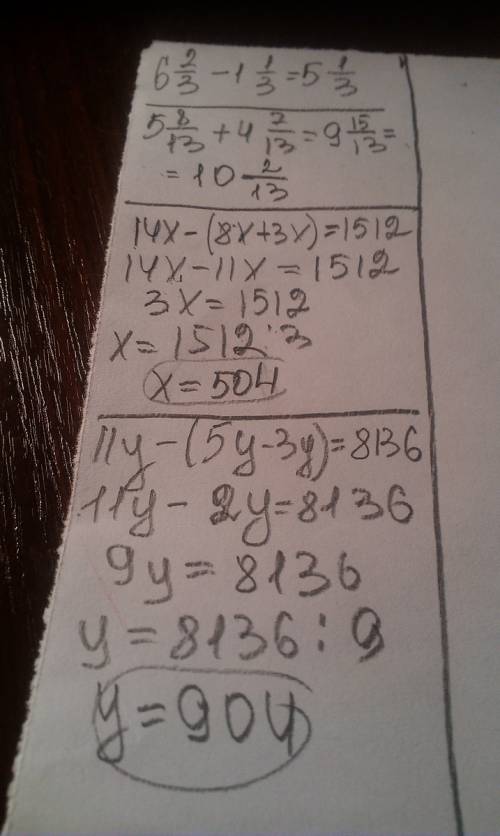 6 2/3 - 1 1/3 = 5 1/3
5 8/13 + 4 7/13 = 9 15/13 =
= 10 2/13
14x-(8x+3x)=1512
14x-11x=1512
3x=1512
x=1512:3
x=504
11y-(5y-3y)=8136
11y-2y=8136
9y=8136
y=8136:9
y=904